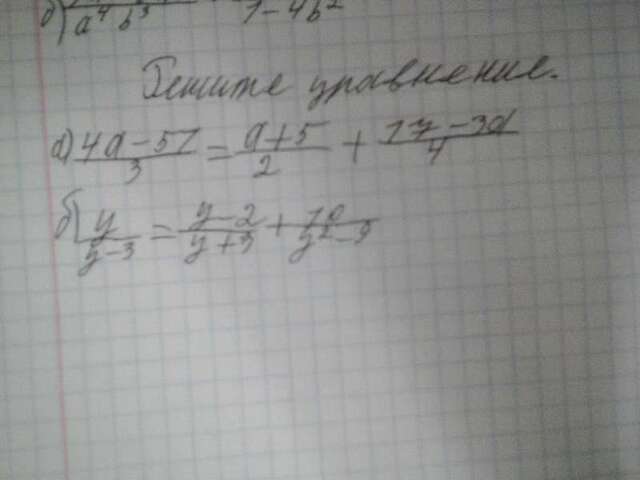 б) a⁴b³ 1-4b²
Решите уравнение.
а) (4a-51)/3 = (a+5)/2 + (17-3a)/4
б) y/(y-3) = (y-2)/(y+3) + 10/(y²-9)